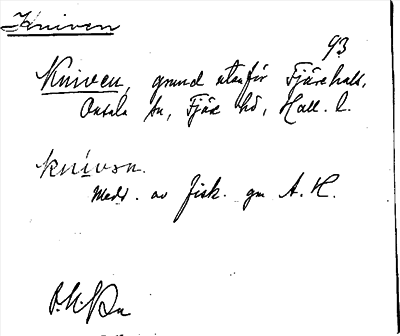 Kniven
93
Kniven, grund utanför Fjärehals,
Onsala sn, Fjäre hd, Hall. l.
knivən.
Medd. av fisk. gm A. H.